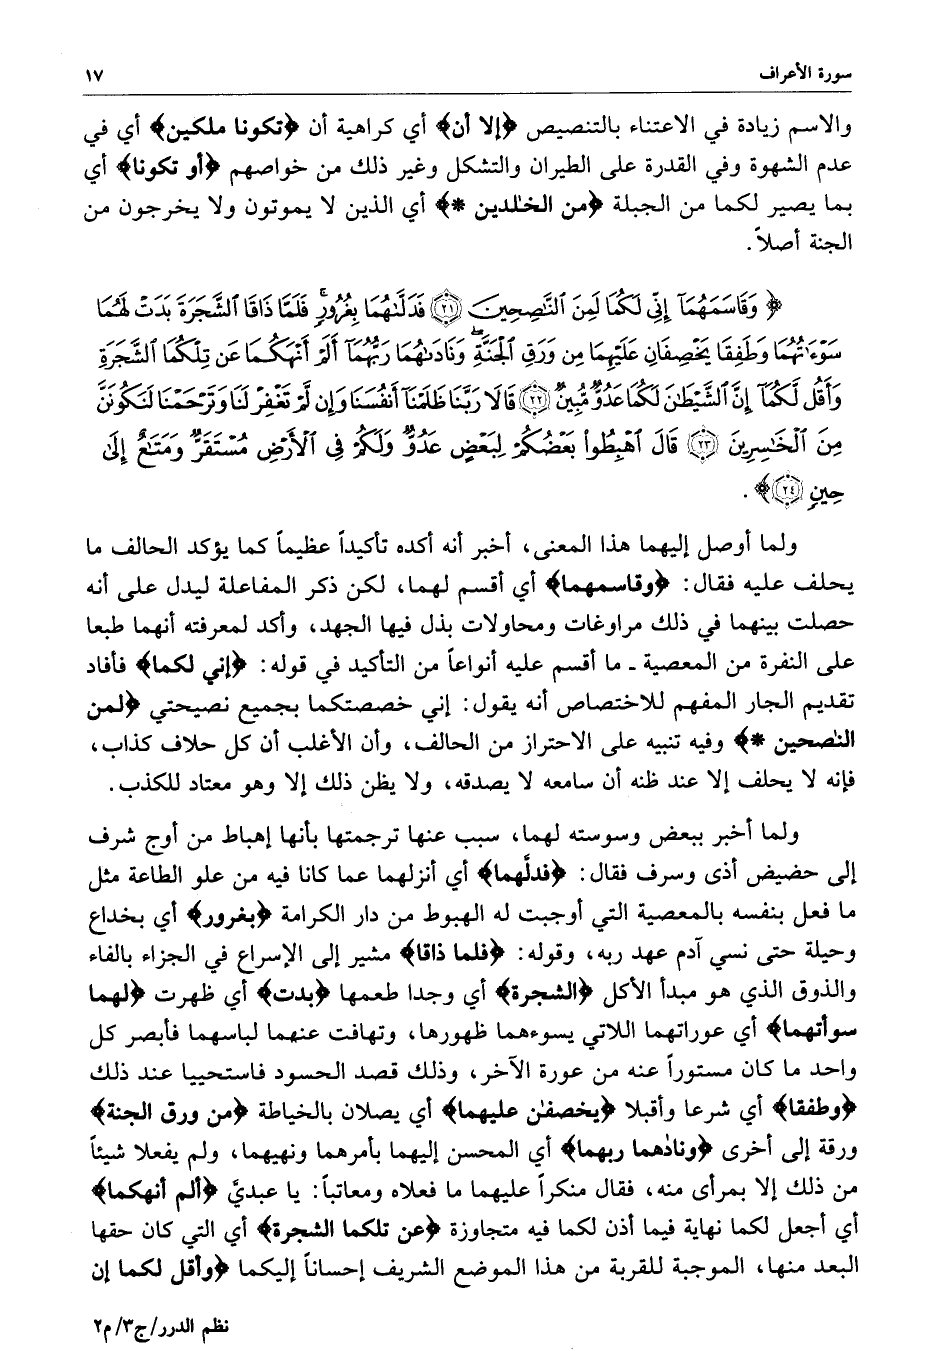 سورة الأعراف ١٧
والاسم زيادة في الاعتناء بالتنصيص ﴿إلا أن﴾ أي كراهية أن ﴿تكونا ملكين﴾ أي في
عدم الشهوة وفي القدرة على الطيران والتشكل وغير ذلك من خواصهم ﴿أو تكونا﴾ أي
بما يصير لكما من الجبلة ﴿من الخٰلدين *﴾ أي الذين لا يموتون ولا يخرجون من
الجنة أصلاً.
﴿وَقَاسَمَهُمَآ إِنِّي لَكُمَا لَمِنَ ٱلنَّٰصِحِينَ ﴿٢١﴾ فَدَلَّىٰهُمَا بِغُرُورٍۚ فَلَمَّا ذَاقَا ٱلشَّجَرَةَ بَدَتْ لَهُمَا
سَوْءَٰتُهُمَا وَطَفِقَا يَخْصِفَانِ عَلَيْهِمَا مِن وَرَقِ ٱلْجَنَّةِۖ وَنَادَىٰهُمَا رَبُّهُمَآ أَلَمْ أَنْهَكُمَا عَن تِلْكُمَا ٱلشَّجَرَةِ
وَأَقُل لَّكُمَآ إِنَّ ٱلشَّيْطَٰنَ لَكُمَا عَدُوٌّ مُّبِينٌ ﴿٢٢﴾ قَالَا رَبَّنَا ظَلَمْنَآ أَنفُسَنَا وَإِن لَّمْ تَغْفِرْ لَنَا وَتَرْحَمْنَا لَنَكُونَنَّ
مِنَ ٱلْخَٰسِرِينَ ﴿٢٣﴾ قَالَ ٱهْبِطُوا۟ بَعْضُكُمْ لِبَعْضٍ عَدُوٌّۖ وَلَكُمْ فِي ٱلْأَرْضِ مُسْتَقَرٌّ وَمَتَٰعٌ إِلَىٰ
حِينٍ ﴿٢٤﴾﴾.
ولما أوصل إليهما هذا المعنى، أخبر أنه أكده تأكيداً عظيماً كما يؤكد الحالف ما
يحلف عليه فقال: ﴿وقاسمهما﴾ أي أقسم لهما، لكن ذكر المفاعلة ليدل على أنه
حصلت بينهما في ذلك مراوغات ومحاولات بذل فيها الجهد، وأكد لمعرفته أنهما طبعا
على النفرة من المعصية - ما أقسم عليه أنواعاً من التأكيد في قوله: ﴿إني لكما﴾ فأفاد
تقديم الجار المفهم للاختصاص أنه يقول: إني خصصتكما بجميع نصيحتي ﴿لمن
النٰصحين *﴾ وفيه تنبيه على الاحتراز من الحالف، وأن الأغلب أن كل حلاف كذاب،
فإنه لا يحلف إلا عند ظنه أن سامعه لا يصدقه، ولا يظن ذلك إلا وهو معتاد للكذب.
ولما أخبر ببعض وسوسته لهما، سبب عنها ترجمتها بأنها إهباط من أوج شرف
إلى حضيض أذى وسرف فقال: ﴿فدلَّٰهما﴾ أي أنزلهما عما كانا فيه من علو الطاعة مثل
ما فعل بنفسه بالمعصية التي أوجبت له الهبوط من دار الكرامة ﴿بغرور﴾ أي بخداع
وحيلة حتى نسي آدم عهد ربه، وقوله: ﴿فلما ذاقا﴾ مشير إلى الإسراع في الجزاء بالفاء
والذوق الذي هو مبدأ الأكل ﴿الشجرة﴾ أي وجدا طعمها ﴿بدت﴾ أي ظهرت ﴿لهما
سوأتهما﴾ أي عوراتهما اللاتي يسوءهما ظهورها، وتهافت عنهما لباسهما فأبصر كل
واحد ما كان مستوراً عنه من عورة الآخر، وذلك قصد الحسود فاستحييا عند ذلك
﴿وطفقا﴾ أي شرعا وأقبلا ﴿يخصفٰن عليهما﴾ أي يصلان بالخياطة ﴿من ورق الجنة﴾
ورقة إلى أخرى ﴿ونادٰهما ربهما﴾ أي المحسن إليهما بأمرهما ونهيهما، ولم يفعلا شيئاً
من ذلك إلا بمرأى منه، فقال منكراً عليهما ما فعلاه ومعاتباً: يا عبديَّ ﴿ألم أنهكما﴾
أي أجعل لكما نهاية فيما أذن لكما فيه متجاوزة ﴿عن تلكما الشجرة﴾ أي التي كان حقها
البعد منها، الموجبة للقربة من هذا الموضع الشريف إحساناً إليكما ﴿وأقل لكما إن
نظم الدرر/ج٣/م٢